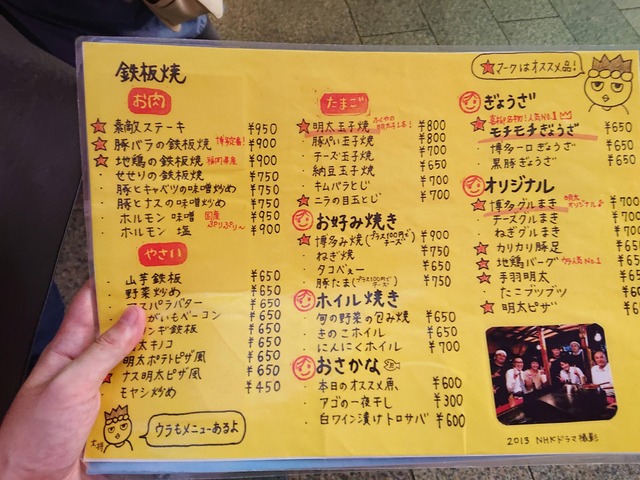 鉄板焼
★マークはオススメ品!
お肉
★素敵ステーキ ¥950
★豚バラの鉄板焼 博多定番! ¥900
★地鶏の鉄板焼 福岡県産 ¥900
・せせりの鉄板焼 ¥750
・豚とキャベツの味噌炒め ¥750
・豚とナスの味噌炒め ¥750
・ホルモン 味噌 国産 ぷりぷり〜 ¥950
・ホルモン 塩 ¥900
やさい
・山芋鉄板 ¥650
・野菜炒め ¥650
スパラバター ¥650
がいもベーコン ¥650
ンギ鉄板 ¥650
太キノコ ¥650
明太ポテトピザ風 ¥650
★ナス明太ピザ風 ¥650
・モヤシ炒め ¥450
ウラもメニューあるよ
たまご
★明太玉子焼 ¥800
・豚ぺい玉子焼 ¥800
・チーズ玉子焼 ¥700
・納豆玉子焼 ¥650
・キムバラとじ ¥700
★ニラの目玉とじ ¥700
お好み焼き
★博多み焼(プラス100円でチーズ) ¥900
・ねぎ焼 ¥750
・タコベェー ¥650
・豚たま(プラス100円でチーズ) ¥750
ホイル焼き
・旬の野菜の包み焼 ¥650
・きのこホイル ¥650
・にんにくホイル ¥700
おさかな
・本日のオススメ魚、 ¥600
・アゴの一夜干し ¥300
・白ワイン漬けトロサバ ¥600
ぎょうざ
人気No.1
★モチモチぎょうざ ¥650
・博多一口ぎょうざ ¥650
・黒豚ぎょうざ ¥650
オリジナル
★博多グルまき 明太オリジナル ¥700
・チーズグルまき
・ねぎグルまき
★カリカリ豚足
★地鶏バーグ 人気No.1
★手羽明太
・たこブツブツ
★明太ピザ
2013 NHKドラマ撮影